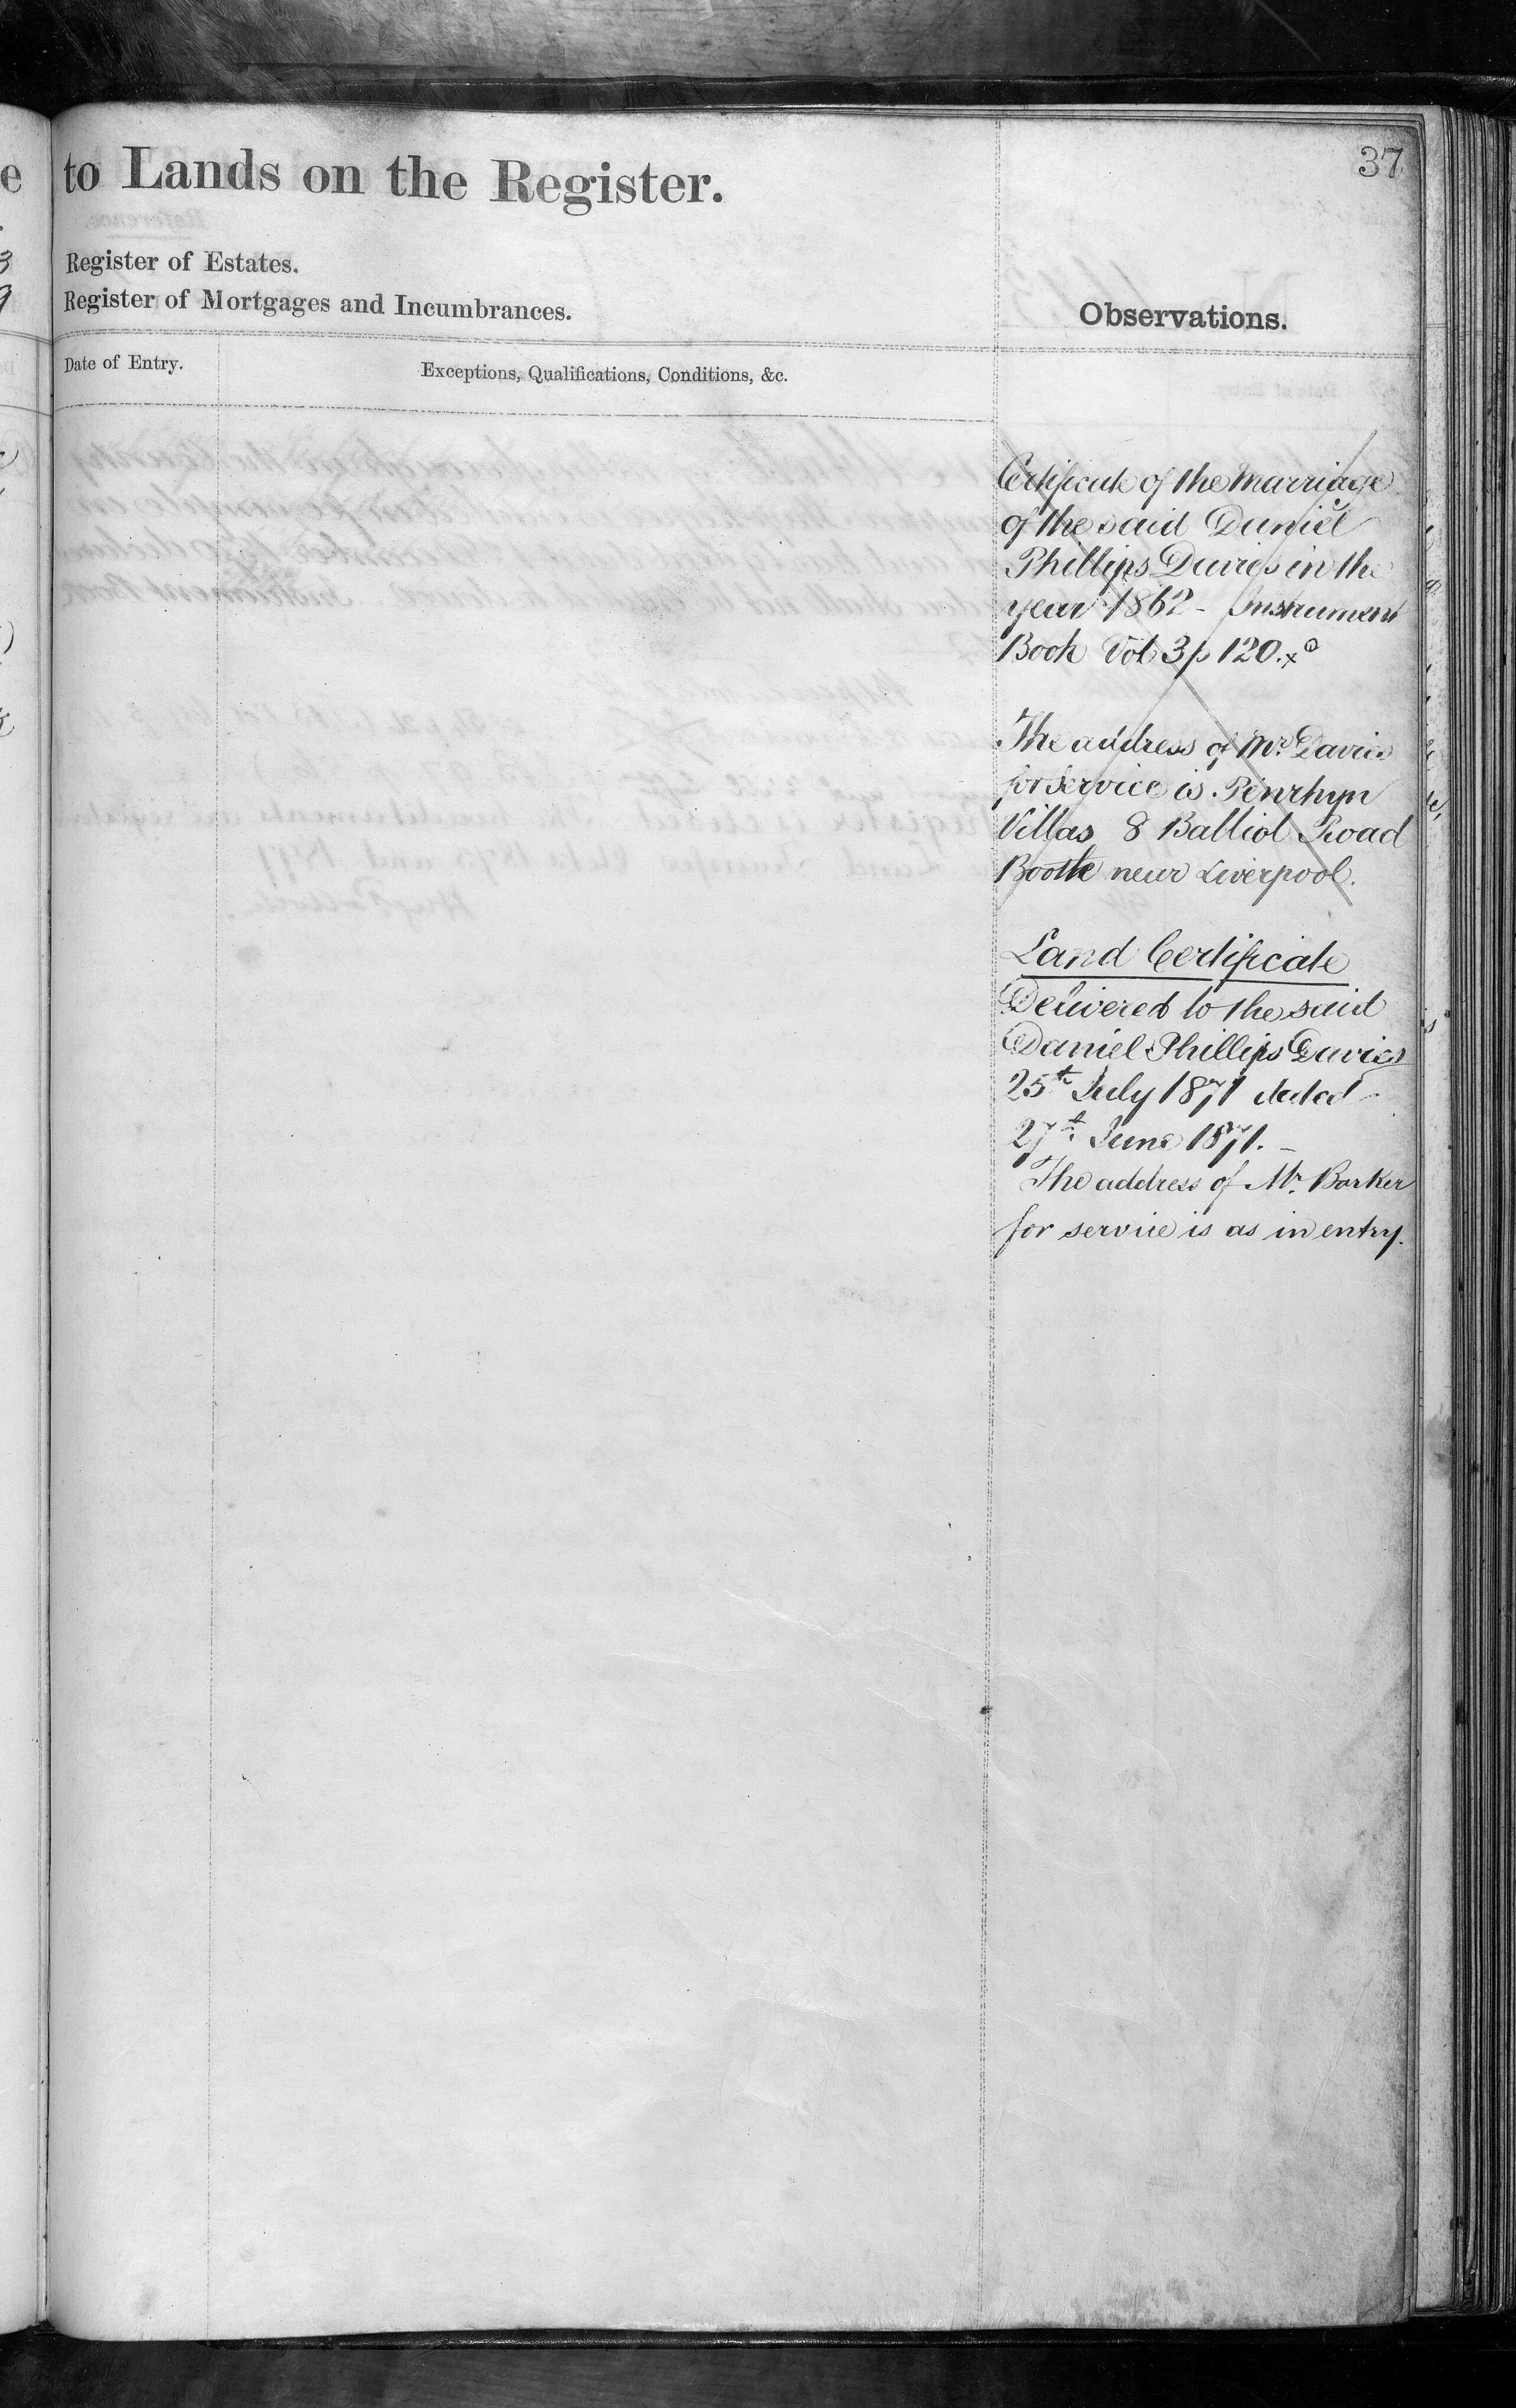 37
to Lands on the Register.
Register of Estates.
Register of Mortgages and Incumbrances.
Observations.
Date of Entry.
Exceptions, Qualifications, Conditions, &c.
Certificate of the Marriage
of the said Daniel
Phillips Davies in the
year 1862 - Instrument
Book Vol 3 p 120.
The address of Mr. Davies
for service is Penrhyn
Villas 8 Balliol Road
Bootle near Liverpool.
Land Certificate
Delivered to the said
Daniel Phillips Davies
25th July 1871 dated
27th June 1871. -
The address of Mr. Barker
for service is as in entry.